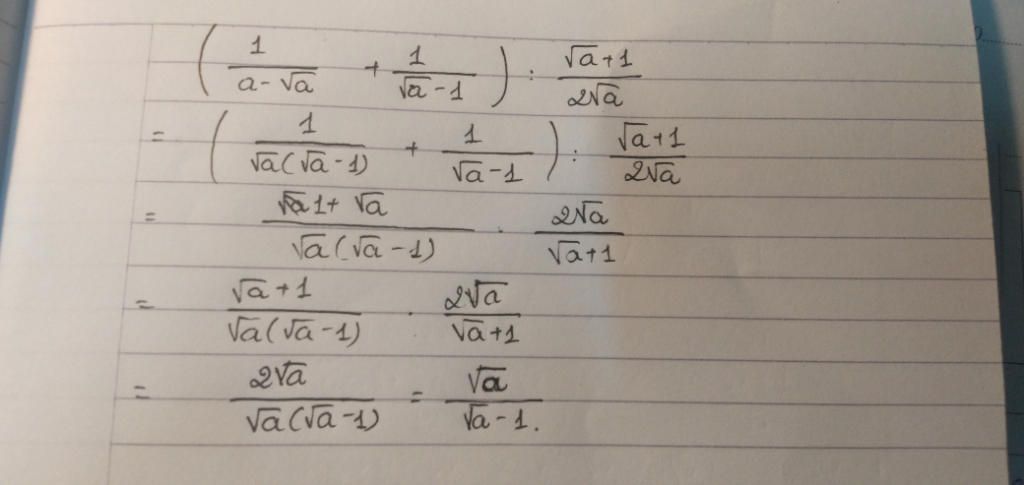 ( 1/(a - √a) + 1/(√a - 1) ) : (√a + 1)/(2√a)
= ( 1/(√a(√a - 1)) + 1/(√a - 1) ) : (√a + 1)/(2√a)
= (1 + √a)/(√a(√a - 1)) . (2√a)/(√a + 1)
= (√a + 1)/(√a(√a - 1)) . (2√a)/(√a + 1)
= (2√a)/(√a(√a - 1)) = (√a)/(√a - 1).